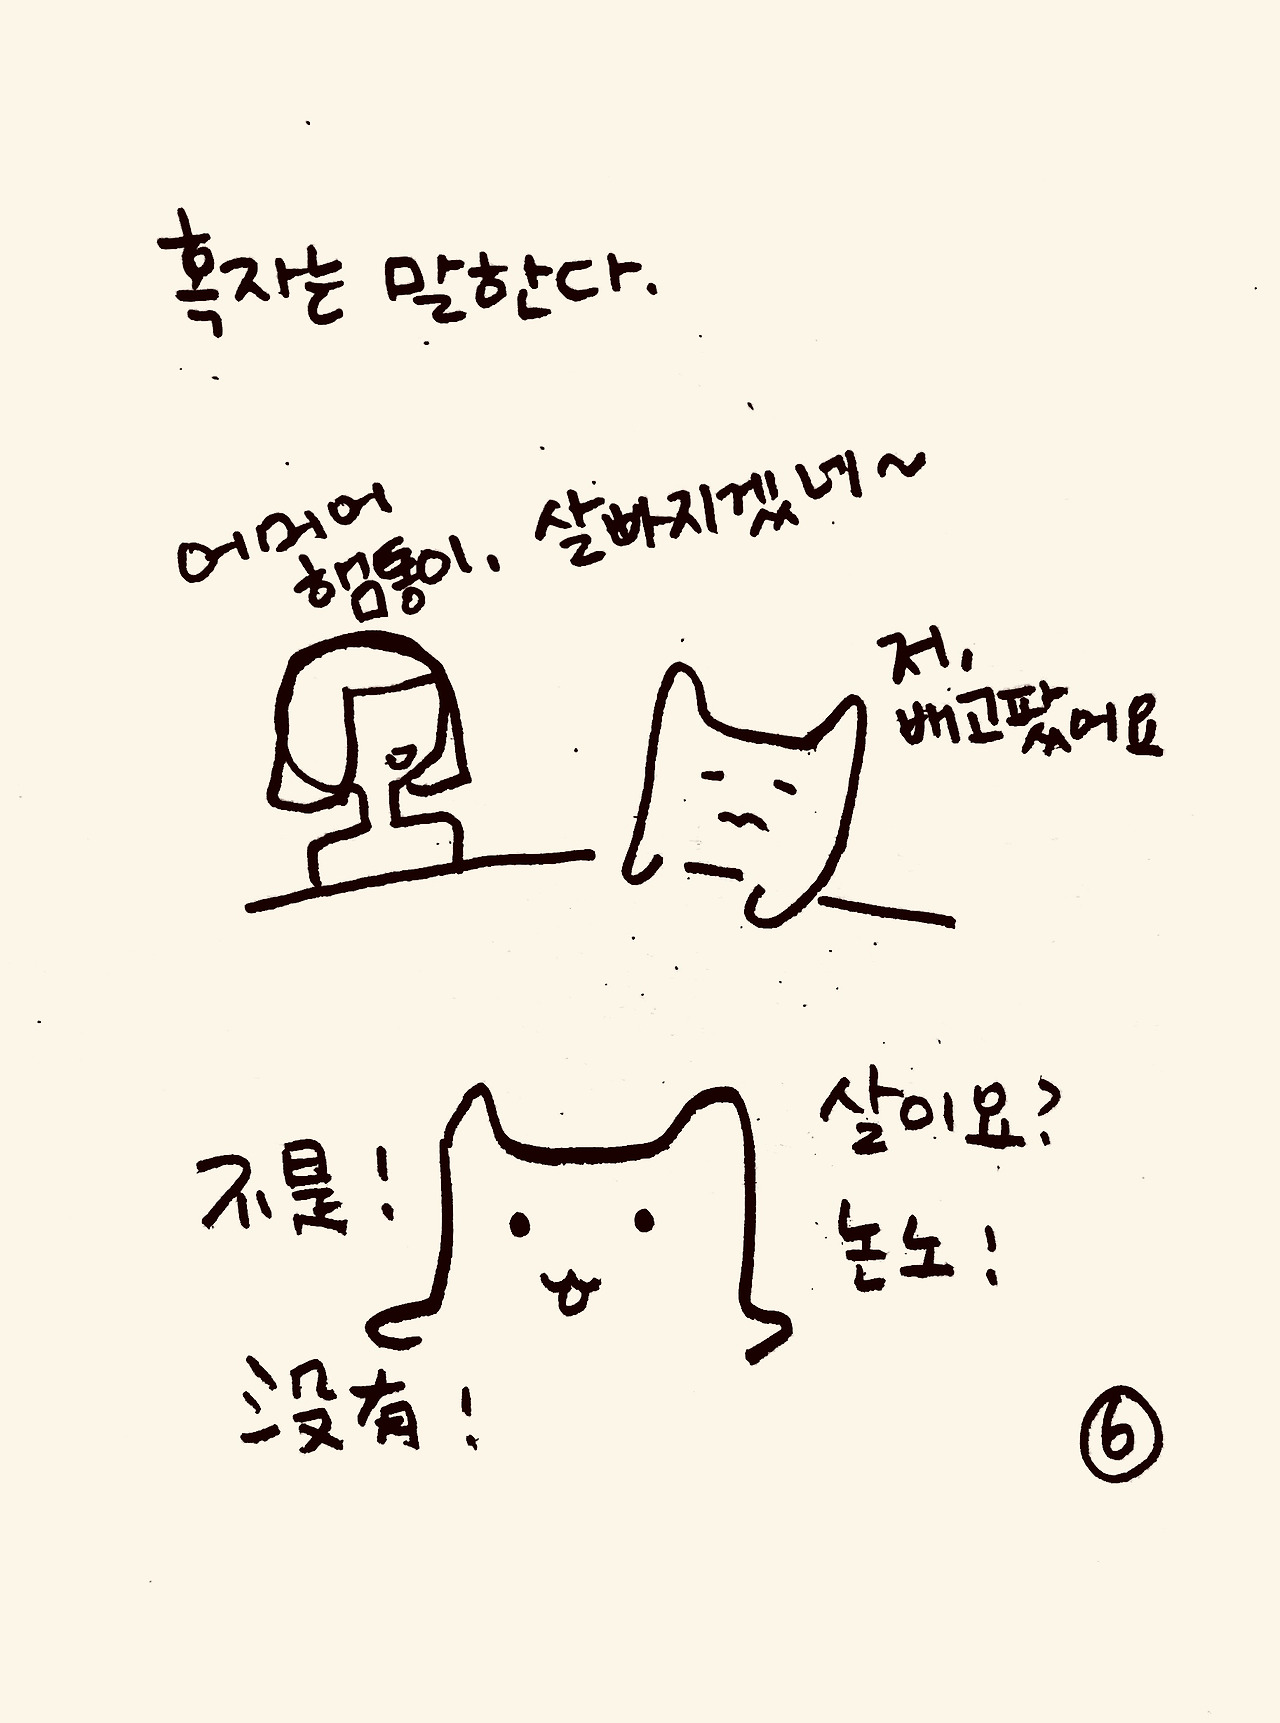 혹자는 말한다.
어머어
햄통이. 살빠지겠네~
저,
배고팠어요
살이요?
不是!
논노!
没有!
6